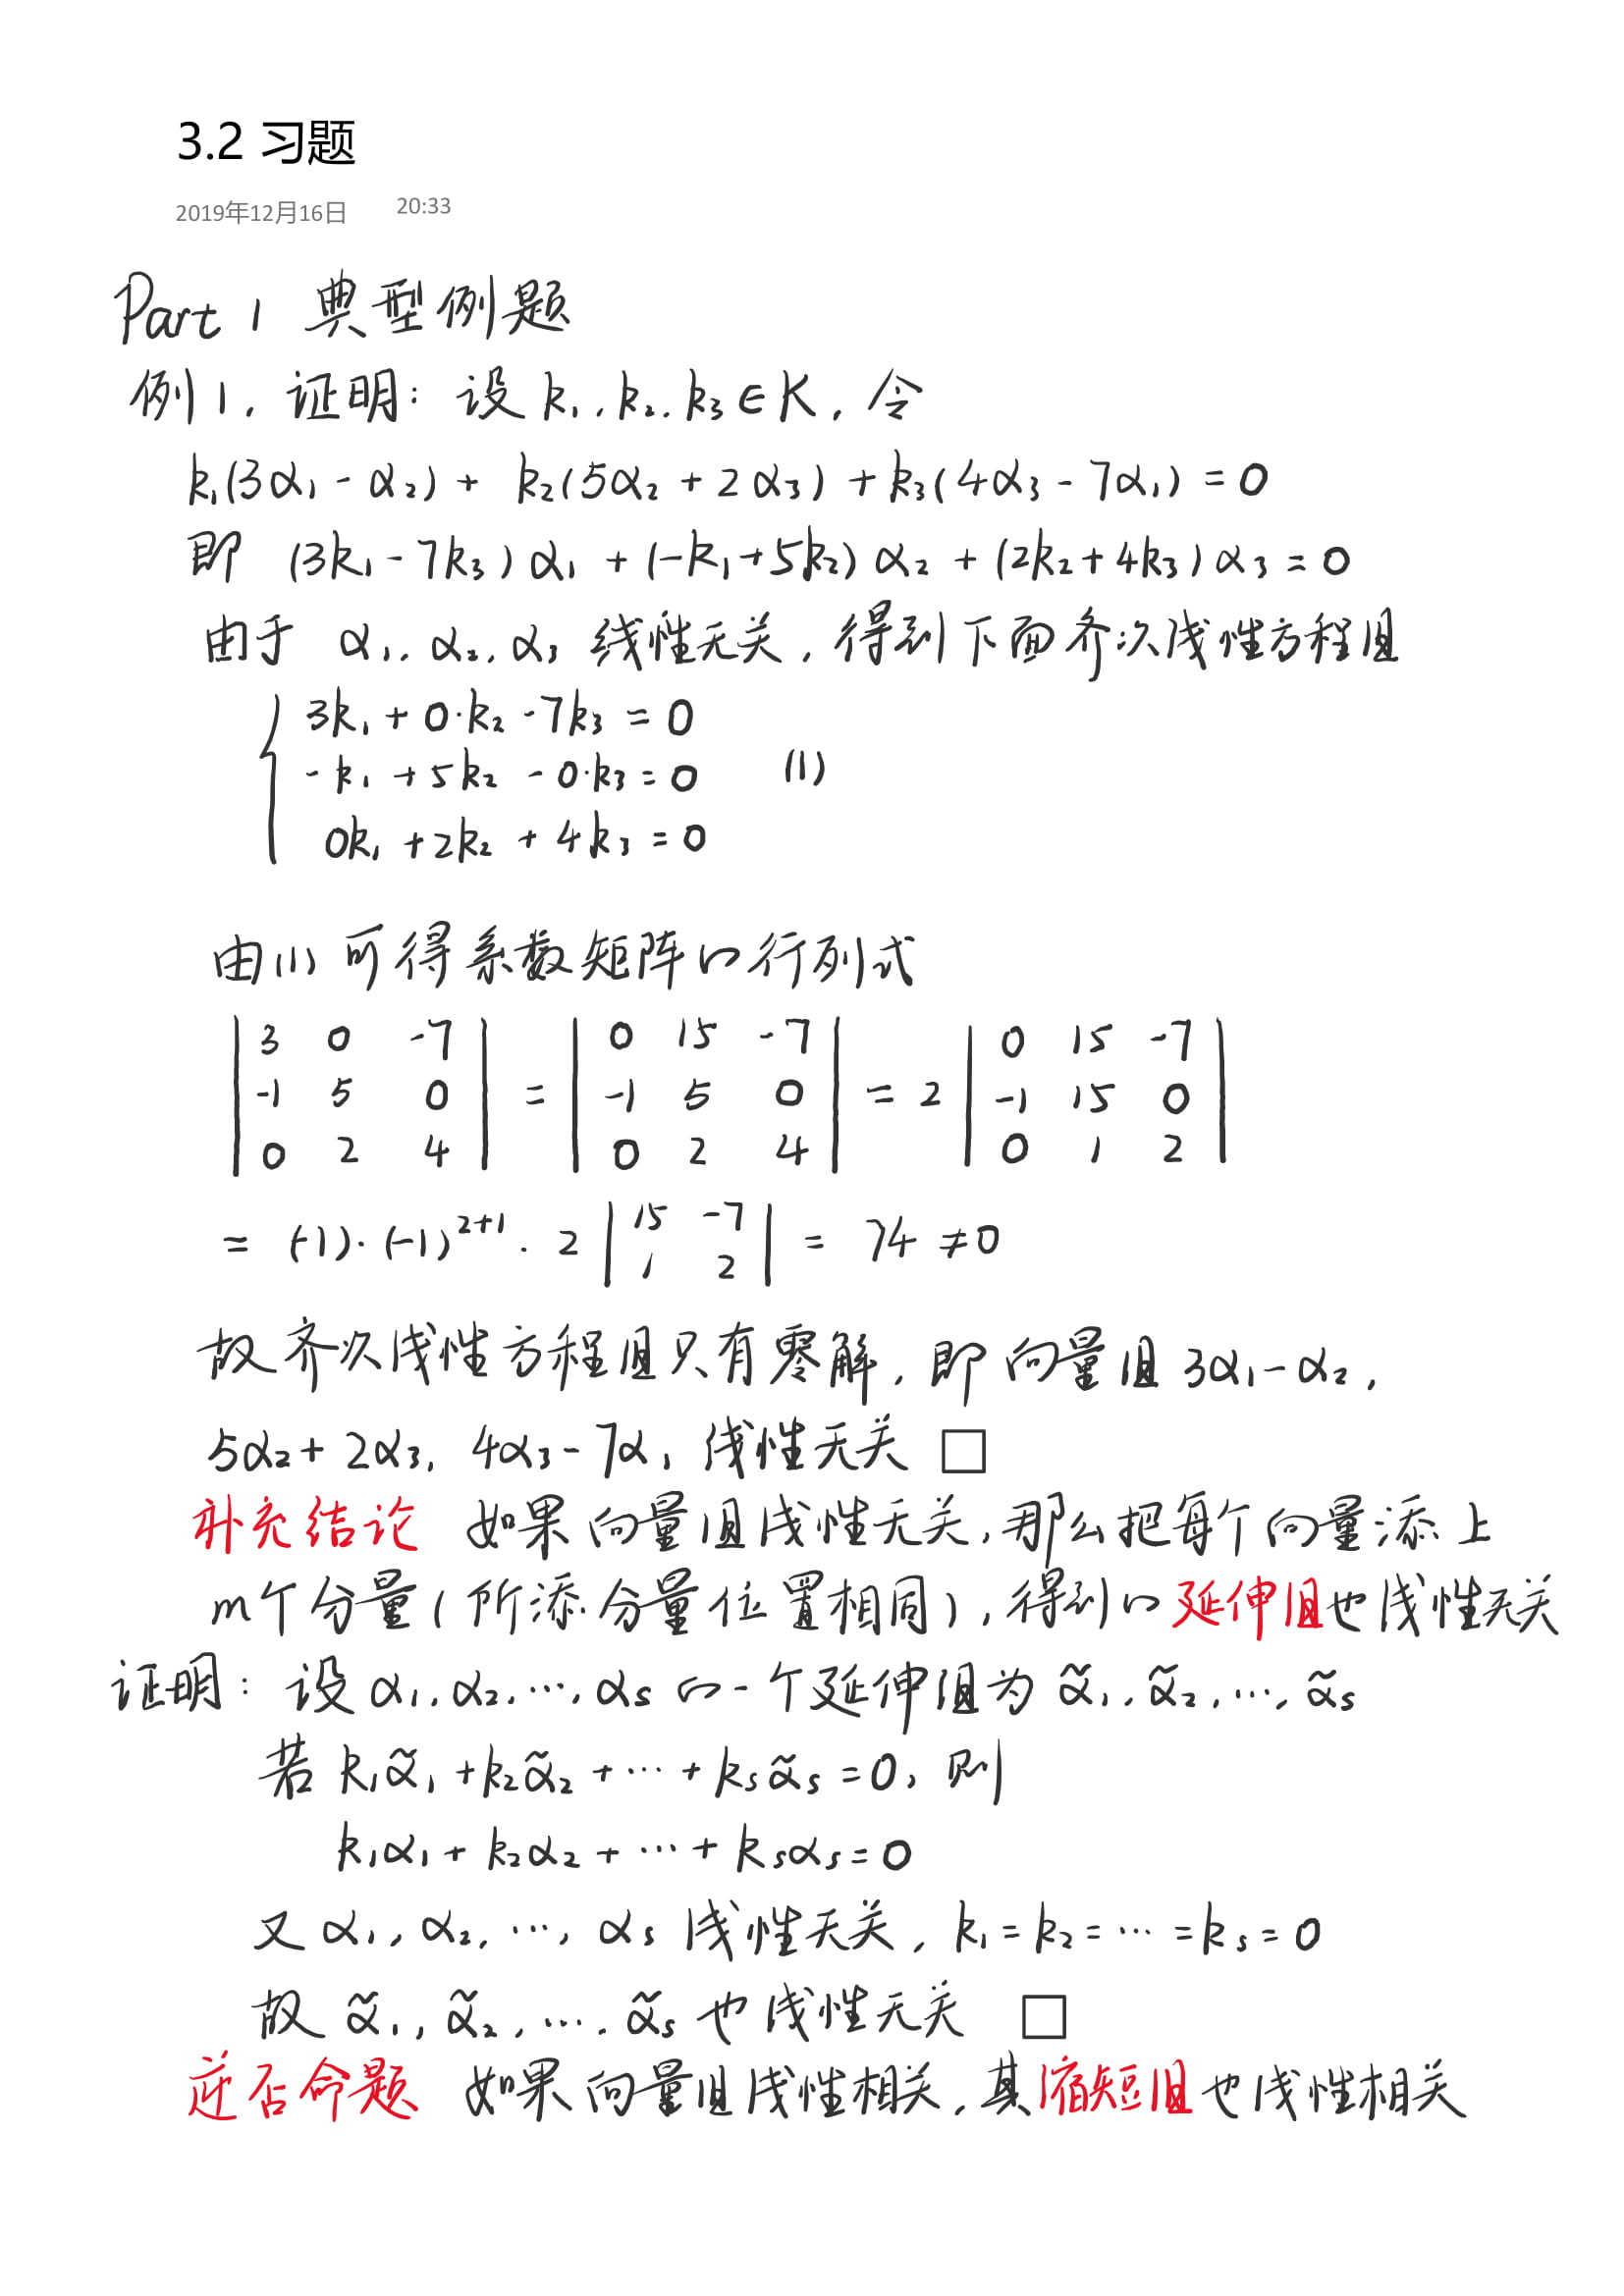 3.2 习题
2019年12月16日 20:33
Part 1 典型例题
例1. 证明: 设 k₁, k₂, k₃ ∈ K, 令
k₁(3α₁ - α₂) + k₂(5α₂ + 2α₃) + k₃(4α₃ - 7α₁) = 0
即 (3k₁ - 7k₃)α₁ + (-k₁ + 5k₂)α₂ + (2k₂ + 4k₃)α₃ = 0
由于 α₁, α₂, α₃ 线性无关, 得到下面齐次线性方程组
3k₁ + 0·k₂ - 7k₃ = 0
-k₁ + 5k₂ - 0·k₃ = 0 (1)
0k₁ + 2k₂ + 4k₃ = 0
由(1)可得系数矩阵的行列式
| 3 0 -7 | | 0 15 -7 | | 0 15 -7 |
| -1 5 0 | = | -1 5 0 | = 2 | -1 15 0 |
| 0 2 4 | | 0 2 4 | | 0 1 2 |
= (-1)·(-1)²⁺¹·2 | 15 -7 | = 74 ≠ 0
| 1 2 |
故齐次线性方程组只有零解, 即向量组 3α₁ - α₂,
5α₂ + 2α₃, 4α₃ - 7α₁ 线性无关 □
补充结论 如果向量组线性无关, 那么把每个向量添上
m个分量(所添分量位置相同), 得到的延伸组也线性无关
证明: 设 α₁, α₂, …, αs 的一个延伸组为 α̃₁, α̃₂, …, α̃s
若 k₁α̃₁ + k₂α̃₂ + … + ksα̃s = 0, 则
k₁α₁ + k₂α₂ + … + ksαs = 0
又 α₁, α₂, …, αs 线性无关, k₁ = k₂ = … = ks = 0
故 α̃₁, α̃₂, …, α̃s 也线性无关 □
逆否命题 如果向量组线性相关, 其缩短组也线性相关